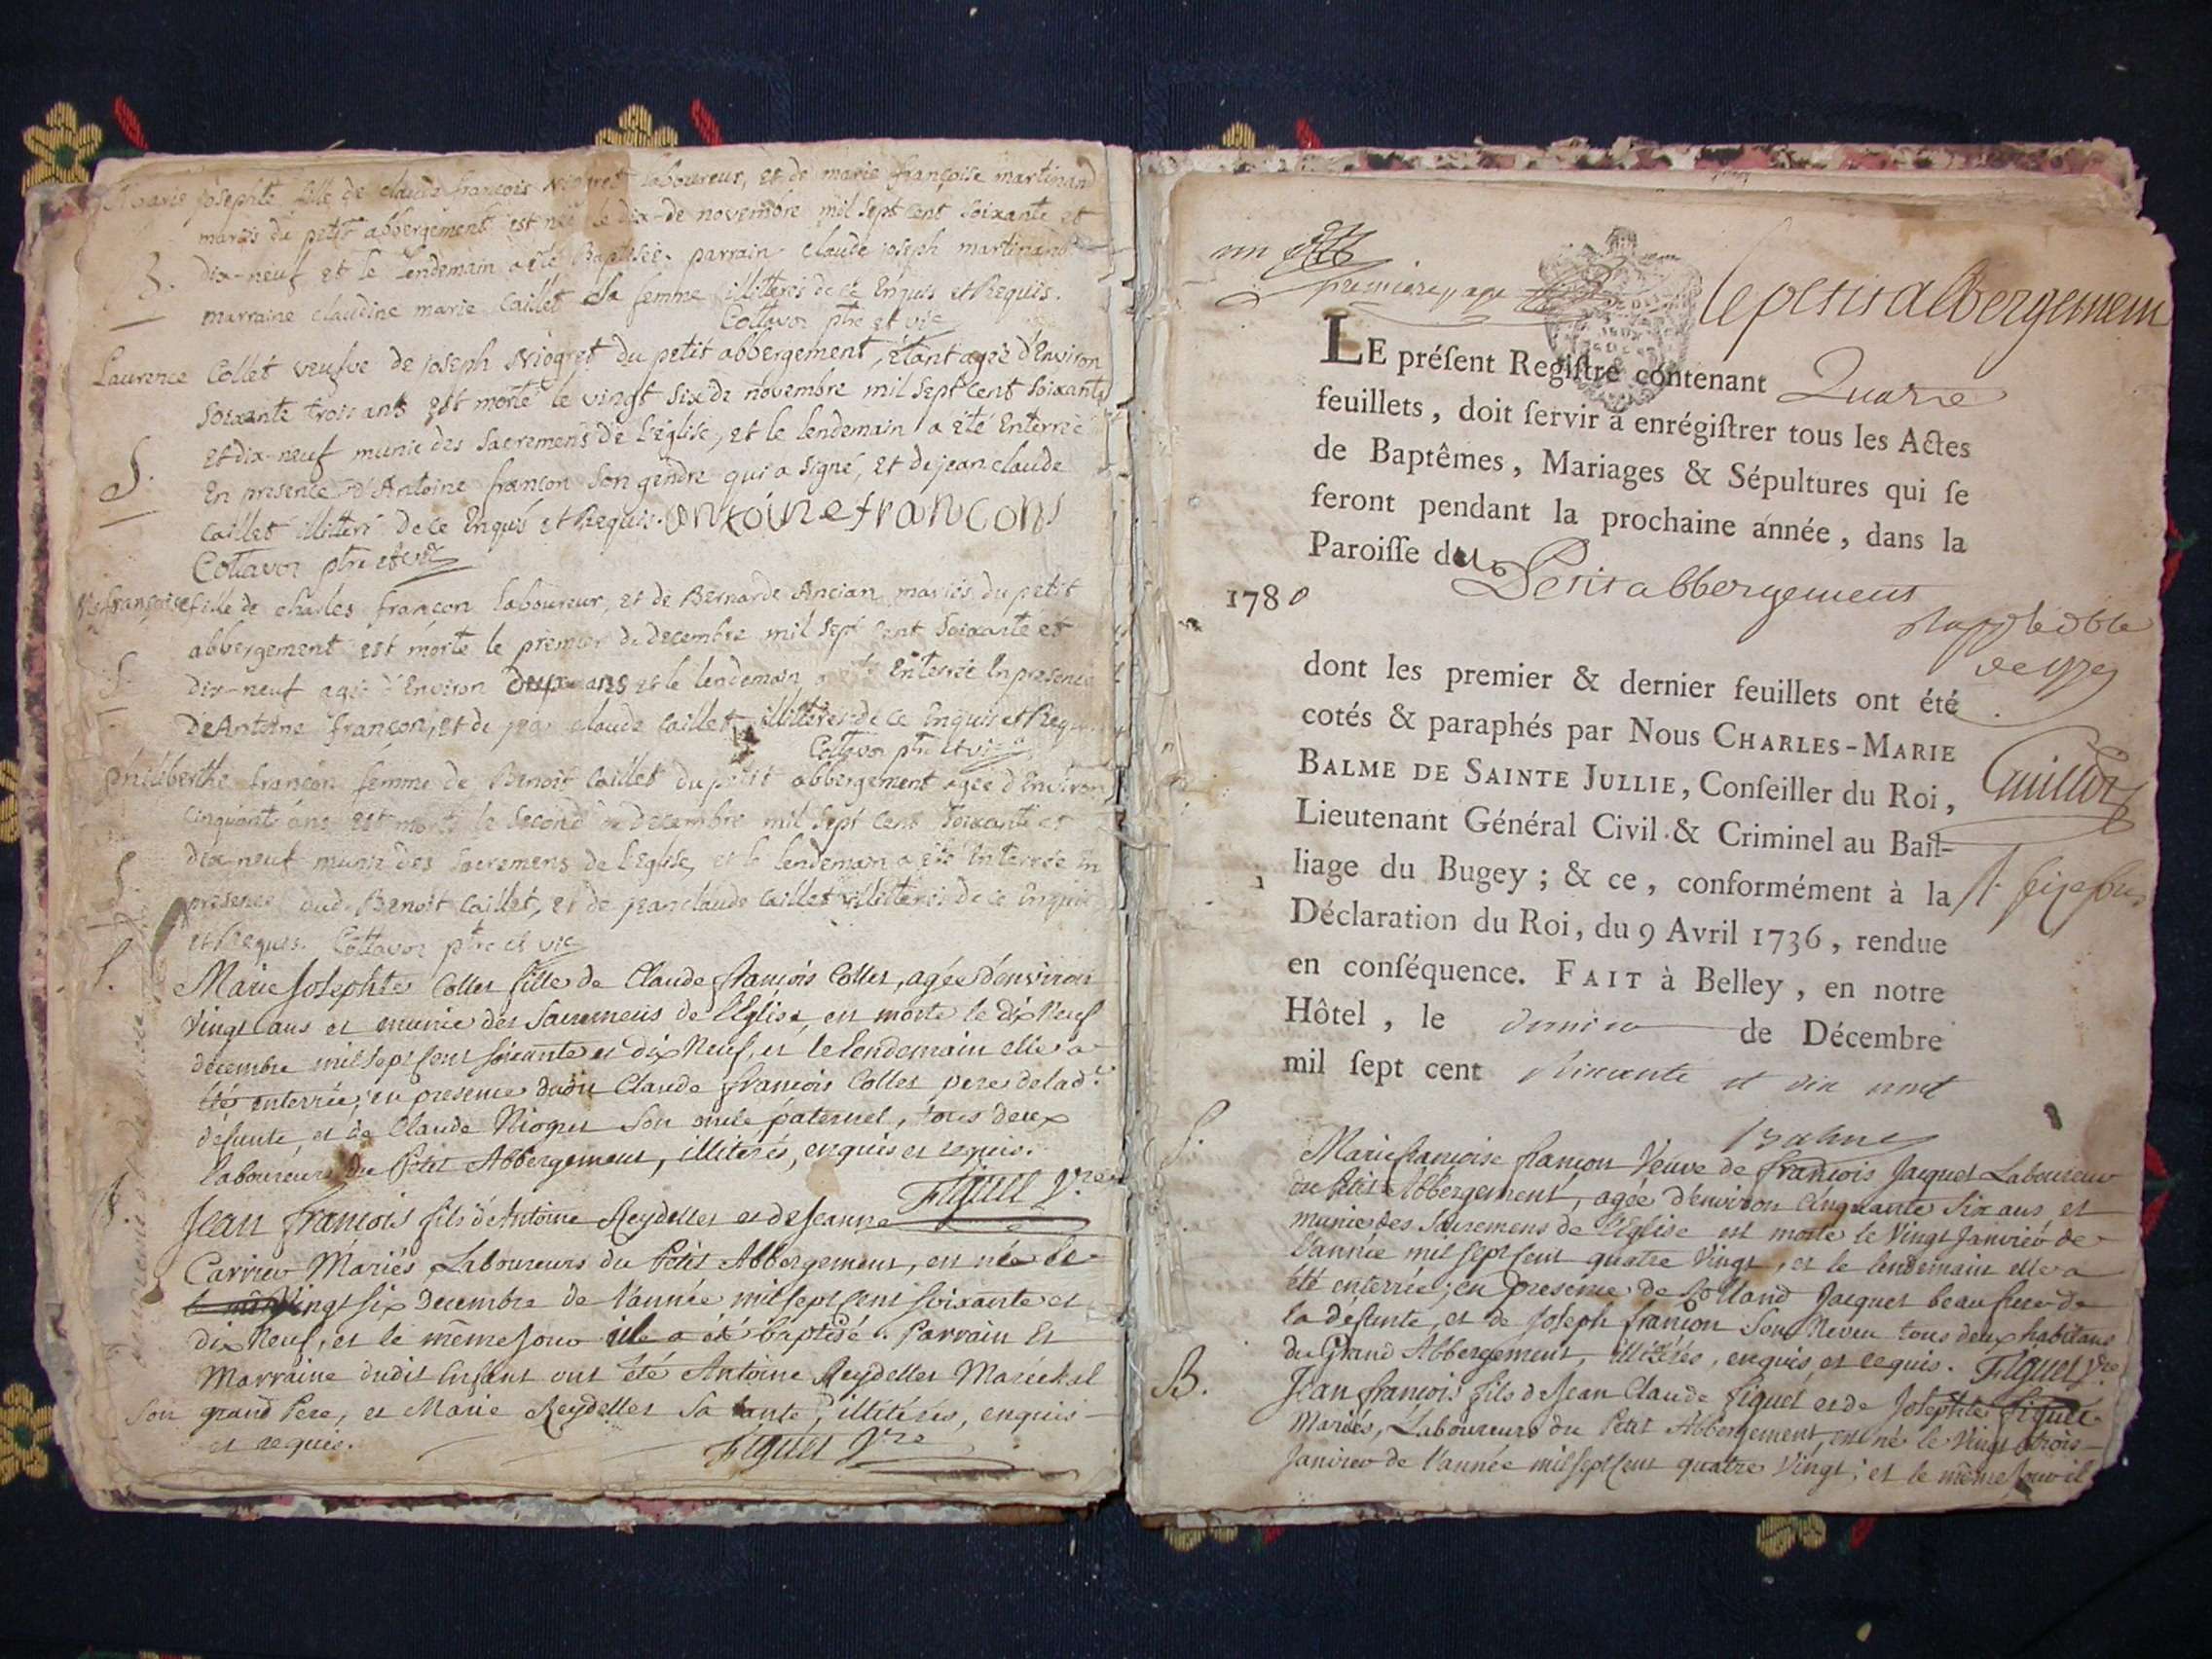 Marie josephte fille de claude françois Niogret laboureur, et de marie françoise martinand
mariés du petit abbergement est née le dix de novembre mil sept cent soixante et
B. dix-neuf et le lendemain a été Baptisée. parrain claude joseph martinand
marraine claudine marie Caillet sa femme illitterés de ce Enquis et Requis.
Cottavoz ptre et vic
Laurence Collet veufve de joseph Niogret du petit abbergement, étant agée d'Environ
soixante trois ans est morte le vingt six de novembre mil sept cent soixante
et dix-neuf munie des sacremens de l'église, et le lendemain a été Enterrée
S. En presence d'Antoine françon son gendre qui a signé, et de jean claude
Caillet illitteré de ce Enquis et Requis. antoine françon
Cottavoz ptre et vic
Me françoise fille de charles françon laboureur, et de Bernarde Ancian mariés du petit
abbergement est morte le premier de decembre mil sept cent soixante et
S. dix-neuf agée d'Environ deux ans et le lendemain a été Enterrée En presence
d'Antoine françon, et de jean claude Caillet illitterés de ce Enquis et Requis
Cottavoz ptre et vic
philiberthe françon femme de Benoit Caillet du petit abbergement agée d'Environ
cinquante ans est morte le second de decembre mil sept cent soixante et
S. dix neuf munie des sacremens de l'Eglise, et le lendemain a été Enterrée En
presence dud. Benoit Caillet, et de jean claude Caillet illitterés de ce Enquis
et Requis. Cottavoz ptre et vic
S. Marie Josephte Collet fille de Claude françois Collet, agée d'environ
vingt ans et munie des Sacremens de l'Eglise, est morte le dix Neuf
decembre mil sept cent soixante et dix Neuf, et le lendemain elle a
été enterrée; en presence dudit Claude françois Collet pere de lad.e
defunte, et de Claude Niogret son oncle paternel, tous deux
laboureurs du Petit Abbergement, illiterés, enquis et requis.
Figuet V.re
B. Jean françois fils d'Antoine Reydellet et de Jeanne
Carrier Mariés, Laboureurs du Petit Abbergement, est née le
vingt six Decembre de l'année mil sept cent soixante et
dix Neuf, et le même jour ile a été baptisé. Parrain Et
Marraine dudit Enfant ont été Antoine Reydellet Maréchal
son grand Pere, et Marie Reydellet sa tante, illiterés, enquis
et requis.
Figuet V.re
premiere page
le petit abbergement
LE préſent Regiſtre contenant Quatre
feuillets, doit ſervir à enrégiſtrer tous les Actes
de Baptêmes, Mariages & Sépultures qui ſe
feront pendant la prochaine année, dans la
Paroiſſe du Petit abbergement
1780
dont les premier & dernier feuillets ont été
cotés & paraphés par Nous CHARLES-MARIE
BALME DE SAINTE JULLIE, Conſeiller du Roi,
Lieutenant Général Civil & Criminel au Bail-
liage du Bugey; & ce, conformément à la
Déclaration du Roi, du 9 Avril 1736, rendue
en conſéquence. FAIT à Belley, en notre
Hôtel, le dernier de Décembre
mil ſept cent soixante et dix neuf
Balme
S. Marie françoise françon Veuve de françois Jacquet Laboureur
du Petit Abbergement, agée d'environ Cinquante Six ans et
munie des Sacremens de l'Eglise est morte le Vingt Janvier de
l'année mil sept cent quatre Vingt, et le lendemain elle a
été enterrée; en presence de Rolland Jacquet beau frere de
la défunte, et de Joseph françon Son Neveu tous deux habitans
du Grand Abbergement, illiterés, enquis et requis. Figuet V.re
B. Jean françois fils de Jean Claude figuet et de Josephte figuet
Mariés, Laboureurs du Petit Abbergement, est né le Vingt trois
Janvier de l'année mil sept cent quatre Vingt; et le même Jour il